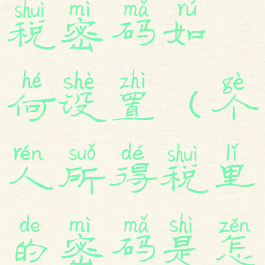 shuì mì mǎ rú
税密码如
hé shè zhì gè
何设置（个
rén suǒ dé shuì lǐ
人所得税里
de mì mǎ shì zěn
的密码是怎